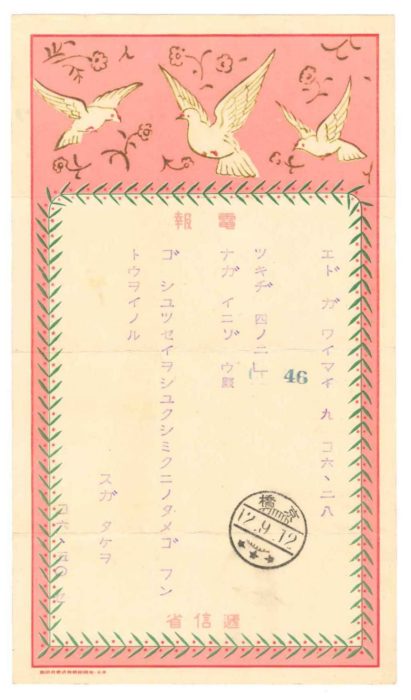 電報
エドガワイマイ 九 コ六、二八
ツキヂ 四ノ二ノ
46
ナガ イニゾ ウ殿
ゴ シユツセイヲシユクシミクニノタメゴ フン
トウヲイノル
スガ タケヲ
コ六、五〇
京橋
12.9.12
遞信省